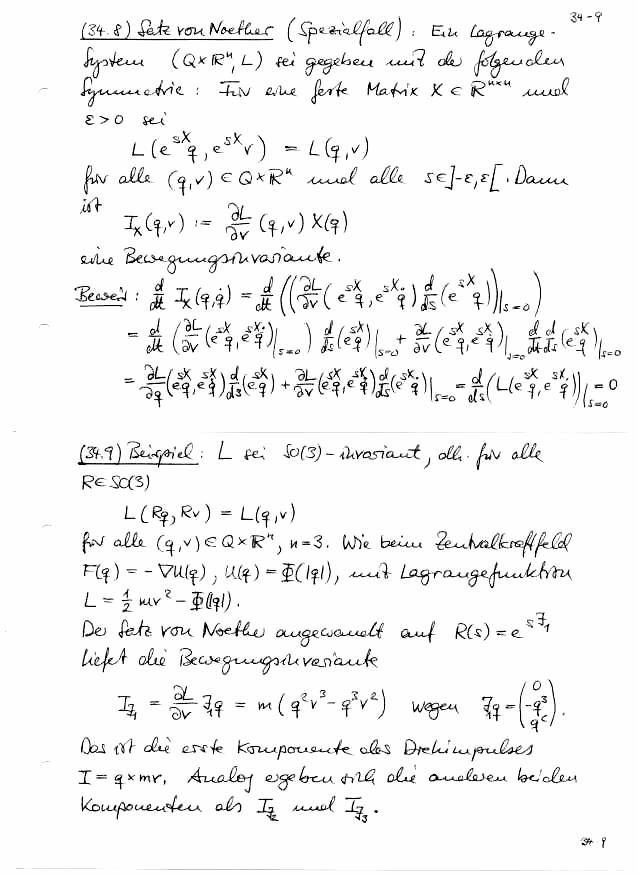 34-9
(34.8) Satz von Noether (Spezialfall): Ein Lagrange-
System (Q×ℝⁿ, L) sei gegeben mit der folgenden
Symmetrie: Für eine feste Matrix X ∈ ℝⁿˣⁿ und
ε>0 sei
L(e^{sX}q, e^{sX}v) = L(q,v)
für alle (q,v) ∈ Q×ℝⁿ und alle s∈]-ε,ε[. Dann
ist
I_X(q,v) := ∂L/∂v (q,v) X(q)
eine Bewegungsinvariante.
Beweis: d/dt I_X(q,q̇) = d/dt ((∂L/∂v (e^{sX}q, e^{sX}q̇) d/ds (e^{sX}q))|_{s=0})
= d/dt (∂L/∂v (e^{sX}q, e^{sX}q̇)|_{s=0}) d/ds (e^{sX}q)|_{s=0} + ∂L/∂v (e^{sX}q, e^{sX}q̇)|_{s=0} d/dt d/ds (e^{sX}q)|_{s=0}
= ∂L/∂q (e^{sX}q, e^{sX}q̇) d/ds (e^{sX}q) + ∂L/∂v (e^{sX}q, e^{sX}q̇) d/ds (e^{sX}q̇)|_{s=0} = d/ds (L(e^{sX}q, e^{sX}q̇))|_{s=0} = 0
(34.9) Beispiel: L sei SO(3)-invariant, d.h. für alle
R∈SO(3)
L(Rq, Rv) = L(q,v)
für alle (q,v)∈Q×ℝⁿ, n=3. Wie beim Zentralkraftfeld
F(q) = -∇U(q), U(q) = Φ(|q|), mit Lagrangefunktion
L = ½ mv² - Φ(|q|).
Der Satz von Noether angewandt auf R(s) = e^{sJ₁}
liefert die Bewegungsinvariante
I_{J₁} = ∂L/∂v J₁q = m(q²v³ - q³v²) wegen J₁q = (0 -q³ q²).
Das ist die erste Komponente des Drehimpulses
I = q×mv. Analog ergeben sich die anderen beiden
Komponenten als I_{J₂} und I_{J₃}.
34-9